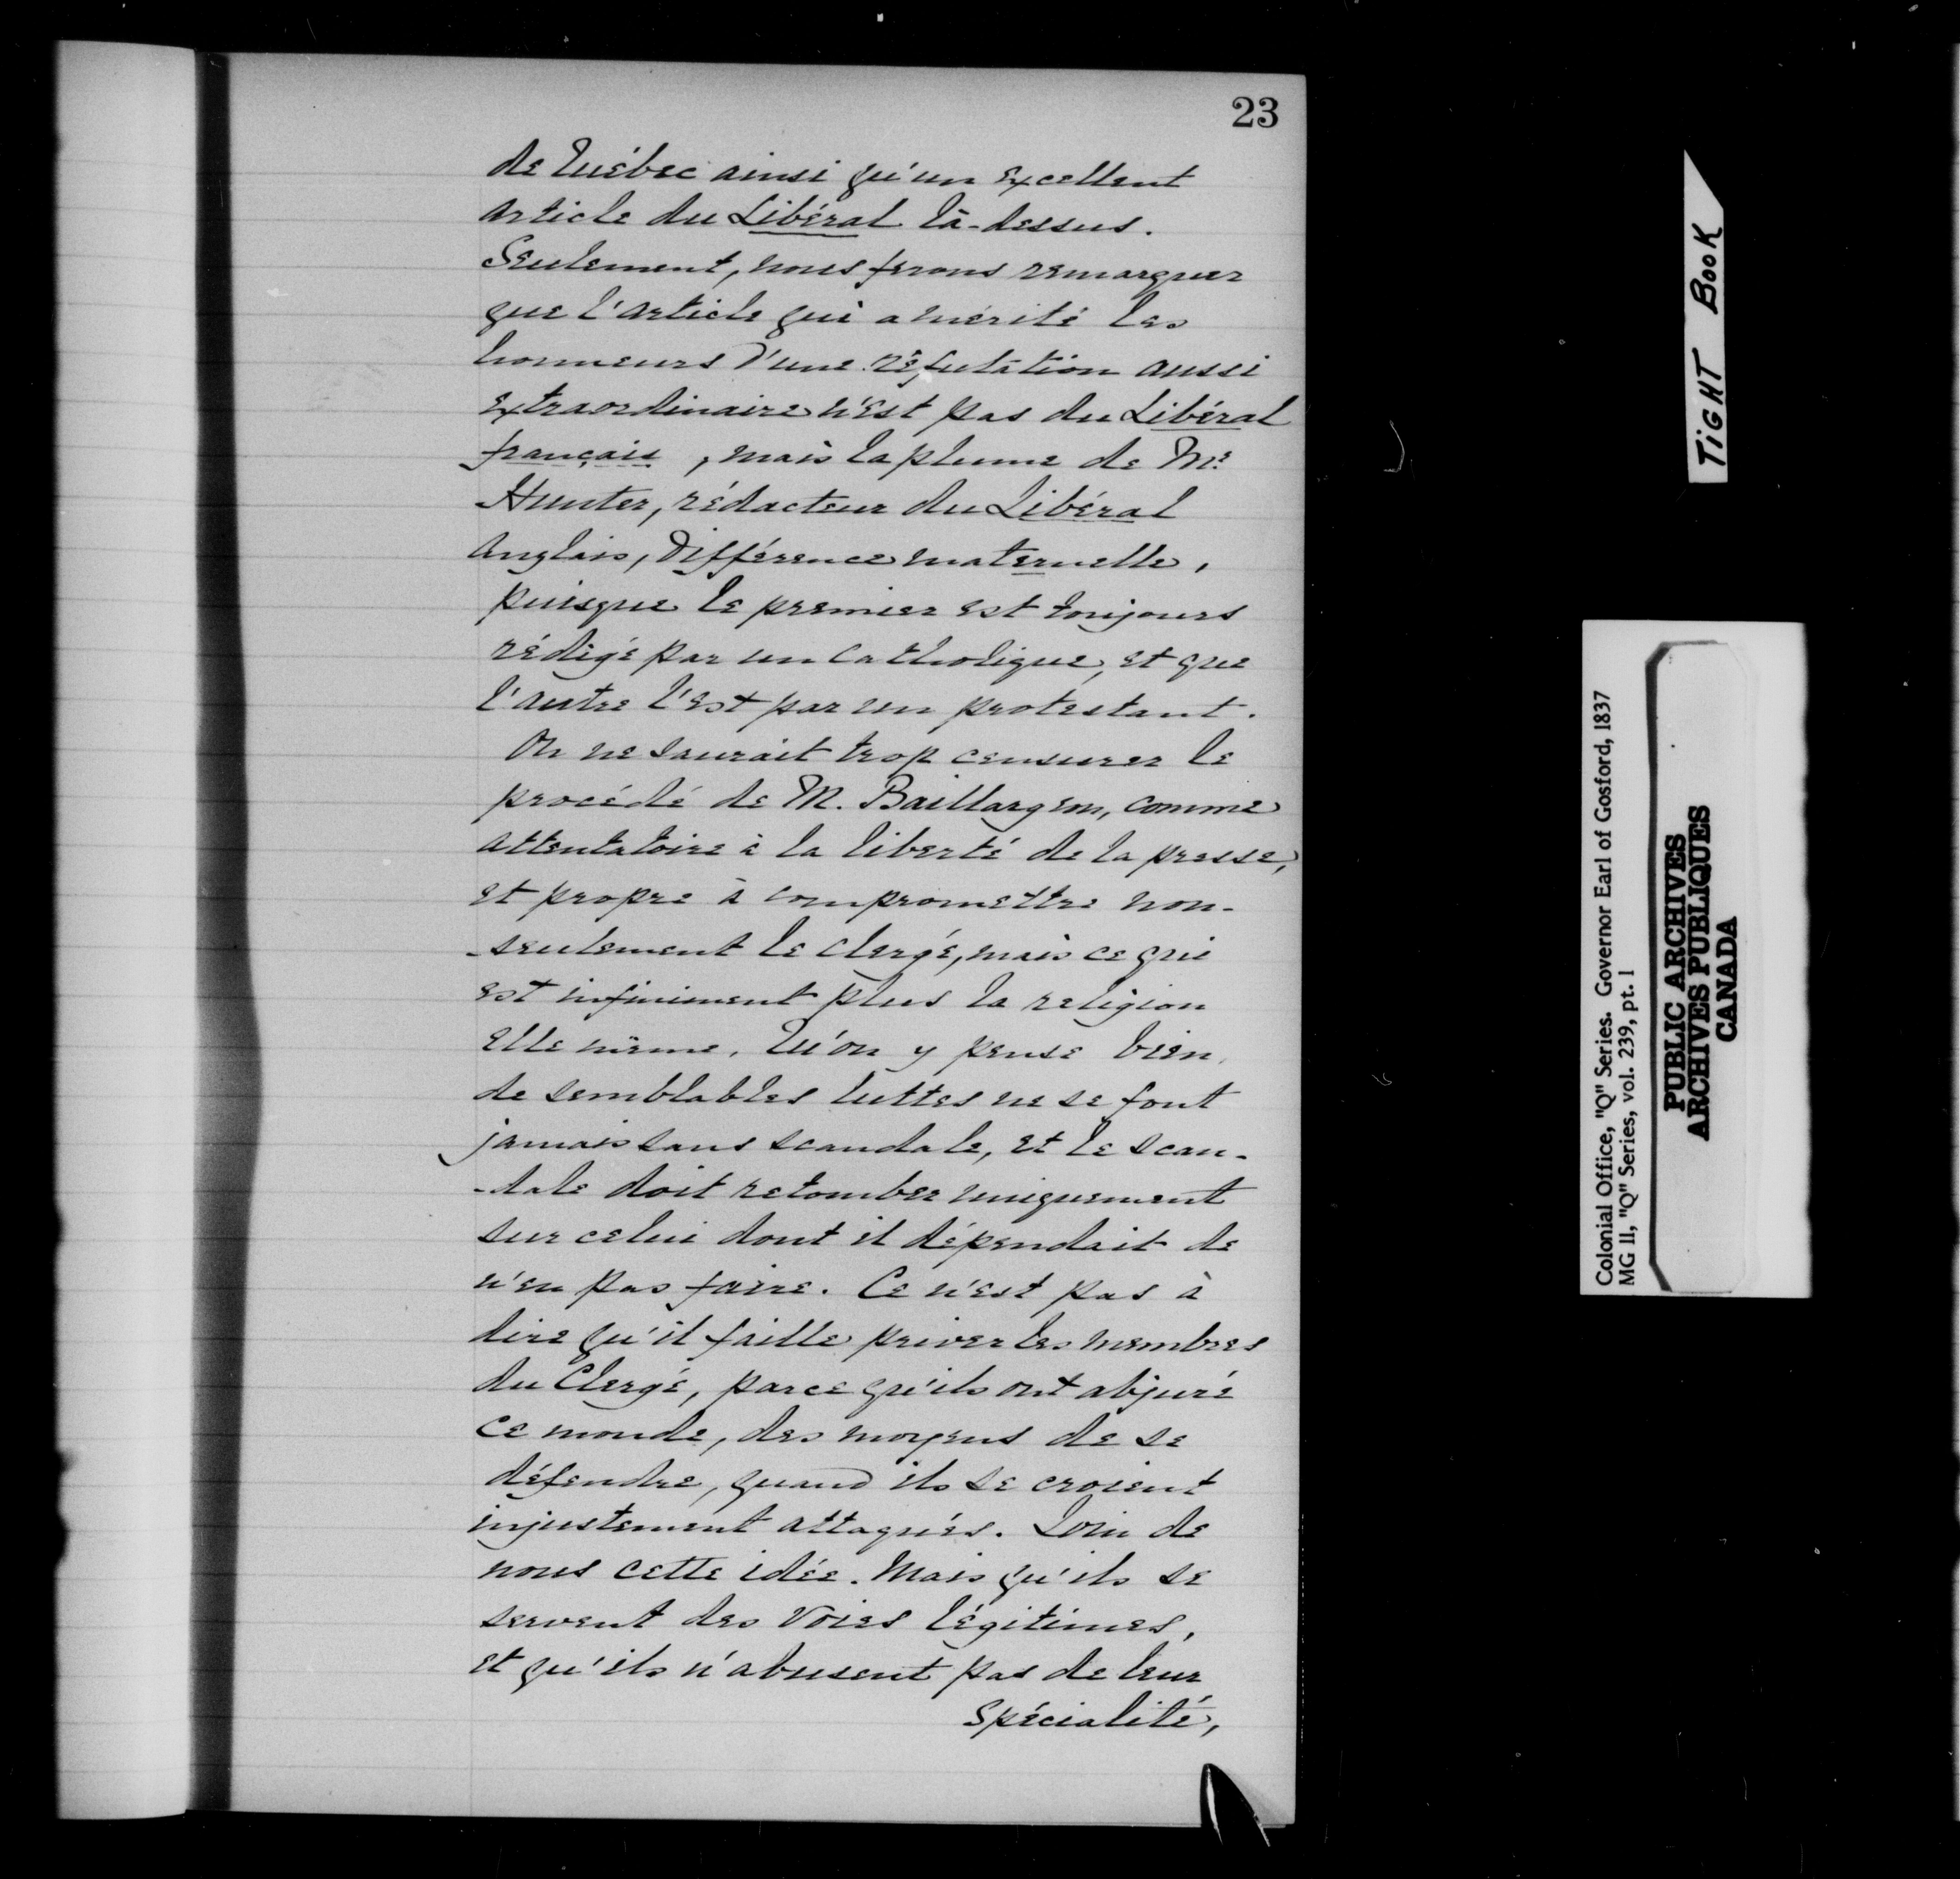 23
de Québec ainsi qu'un excellent
article du Libéral là-dessus.
Seulement, nous ferons remarquer
que l'article qui a mérité les
honneurs d'une réfutation aussi
extraordinaire n'est pas du Libéral
français, mais la plume de Mr.
Hunter, rédacteur du Libéral
anglais, différence maternelle,
puisque le premier est toujours
rédigé par un catholique, et que
l'autre l'est par un protestant.
On ne saurait trop censurer le
procédé de M. Baillargeon, comme
attentatoire à la liberté de la presse,
et propre à compromettre non-
-seulement le clergé, mais ce qui
est infiniment plus la religion
elle même. Qu'on y pense bien,
de semblables luttes ne se font
jamais sans scandale, et le scan-
-dale doit retomber uniquement
sur celui dont il dépendait de
n'en pas faire. Ce n'est pas à
dire qu'il faille priver les membres
du Clergé, parce qu'ils ont abjuré
ce monde, des moyens de se
défendre, quand ils se croient
injustement attaqués. Loin de
nous cette idée. Mais qu'ils se
servent des voies légitimes,
et qu'ils n'abusent pas de leur
spécialité,
TIGHT BOOK
Colonial Office, "Q" Series. Governor Earl of Gosford, 1837
MG 11, "Q" Series, vol. 239, pt. 1
PUBLIC ARCHIVES
ARCHIVES PUBLIQUES
CANADA